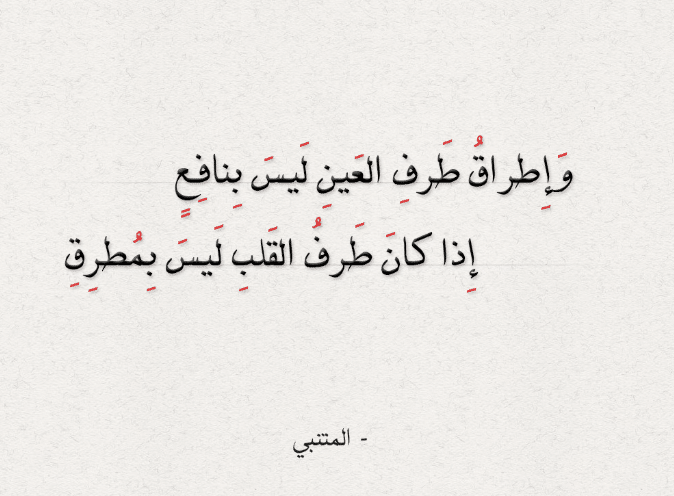 وَإِطراقُ طَرفِ العَينِ لَيسَ بِنافِعٍ
إِذا كانَ طَرفُ القَلبِ لَيسَ بِمُطرِقِ
- المتنبي